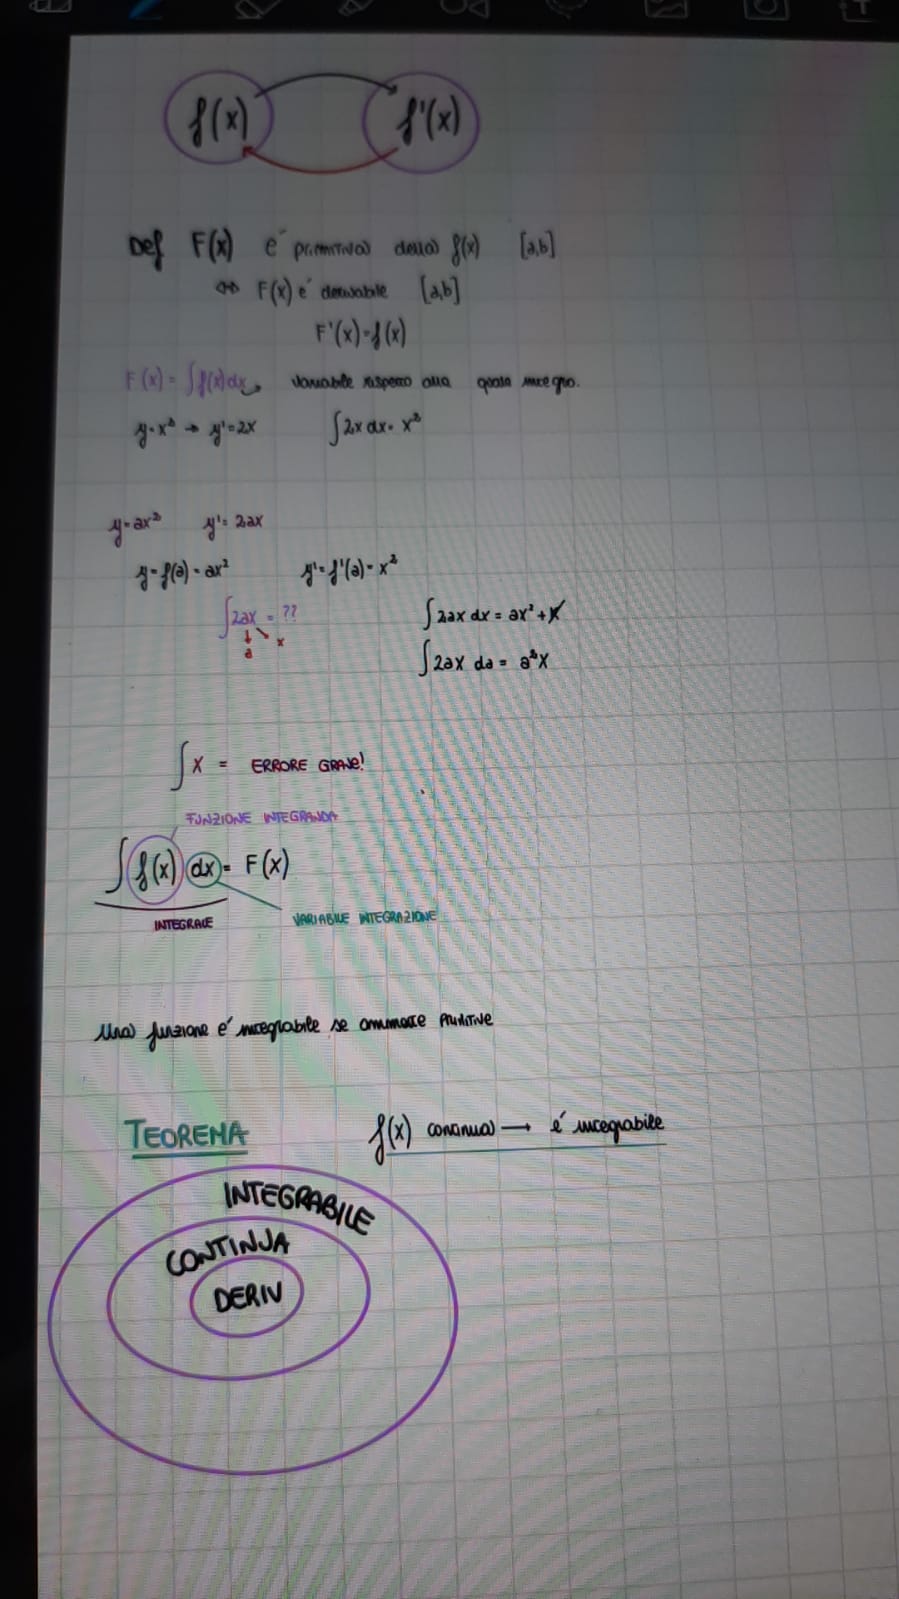 f(x) f'(x)
Def F(x) é primitiva della f(x) [a,b]
⇔ F(x) é derivabile [a,b]
F'(x)=f(x)
F(x) = ∫f(x)dx → variabile rispetto alla quale integro.
y=x² → y'=2x ∫2x dx= x²
y=ax² y'= 2ax
y=f(a)=ax² y'=f'(a)=x²
∫2ax = ?? ∫2ax dx = ax²+k
↓ ↘ x
a
∫2ax da = a²x
∫x = ERRORE GRAVE!
FUNZIONE INTEGRANDA
∫f(x) dx = F(x)
INTEGRALE VARIABILE INTEGRAZIONE
Una funzione é integrabile se ammette PRIMITIVE
TEOREMA f(x) continua → é integrabile
INTEGRABILE
CONTINUA
DERIV